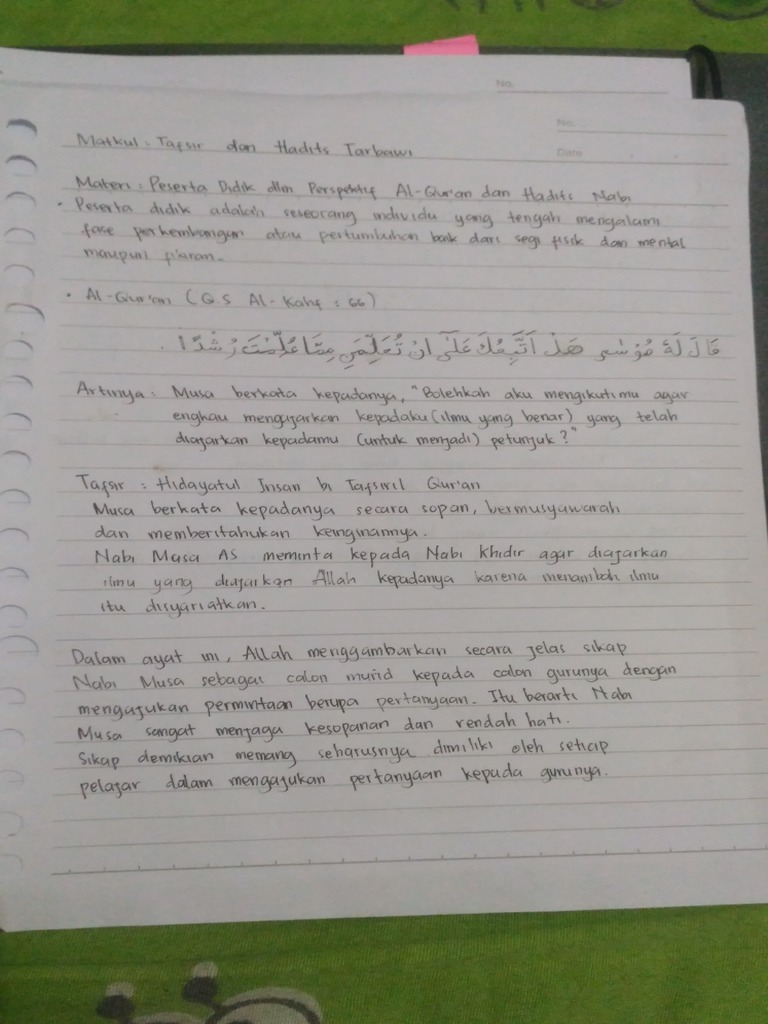 No.
No.
Date
Matkul : Tafsir dan Hadits Tarbawi
Materi : Peserta Didik dlm Perspektif Al-Qur'an dan Hadits Nabi
• Peserta didik adalah seseorang individu yang tengah mengalami
fase perkembangan atau pertumbuhan baik dari segi fisik dan mental
maupun fikiran.
• Al-Qur'an (Q.S Al-Kahf : 66)
قَالَ لَهٗ مُوْسٰى هَلْ اَتَّبِعُكَ عَلٰٓى اَنْ تُعَلِّمَنِ مِمَّا عُلِّمْتَ رُشْدًا .
Artinya : Musa berkata kepadanya, "Bolehkah aku mengikutimu agar
engkau mengajarkan kepadaku (ilmu yang benar) yang telah
diajarkan kepadamu (untuk menjadi) petunjuk ?"
Tafsir : Hidayatul Insan bi Tafsiril Qur'an
Musa berkata kepadanya secara sopan, bermusyawarah
dan memberitahukan keinginannya.
Nabi Musa AS meminta kepada Nabi Khidir agar diajarkan
ilmu yang diajarkan Allah kepadanya karena menambah ilmu
itu disyariatkan.
Dalam ayat ini, Allah menggambarkan secara jelas sikap
Nabi Musa sebagai calon murid kepada calon gurunya dengan
mengajukan permintaan berupa pertanyaan. Itu berarti Nabi
Musa sangat menjaga kesopanan dan rendah hati.
Sikap demikian memang seharusnya dimiliki oleh setiap
pelajar dalam mengajukan pertanyaan kepada gurunya.